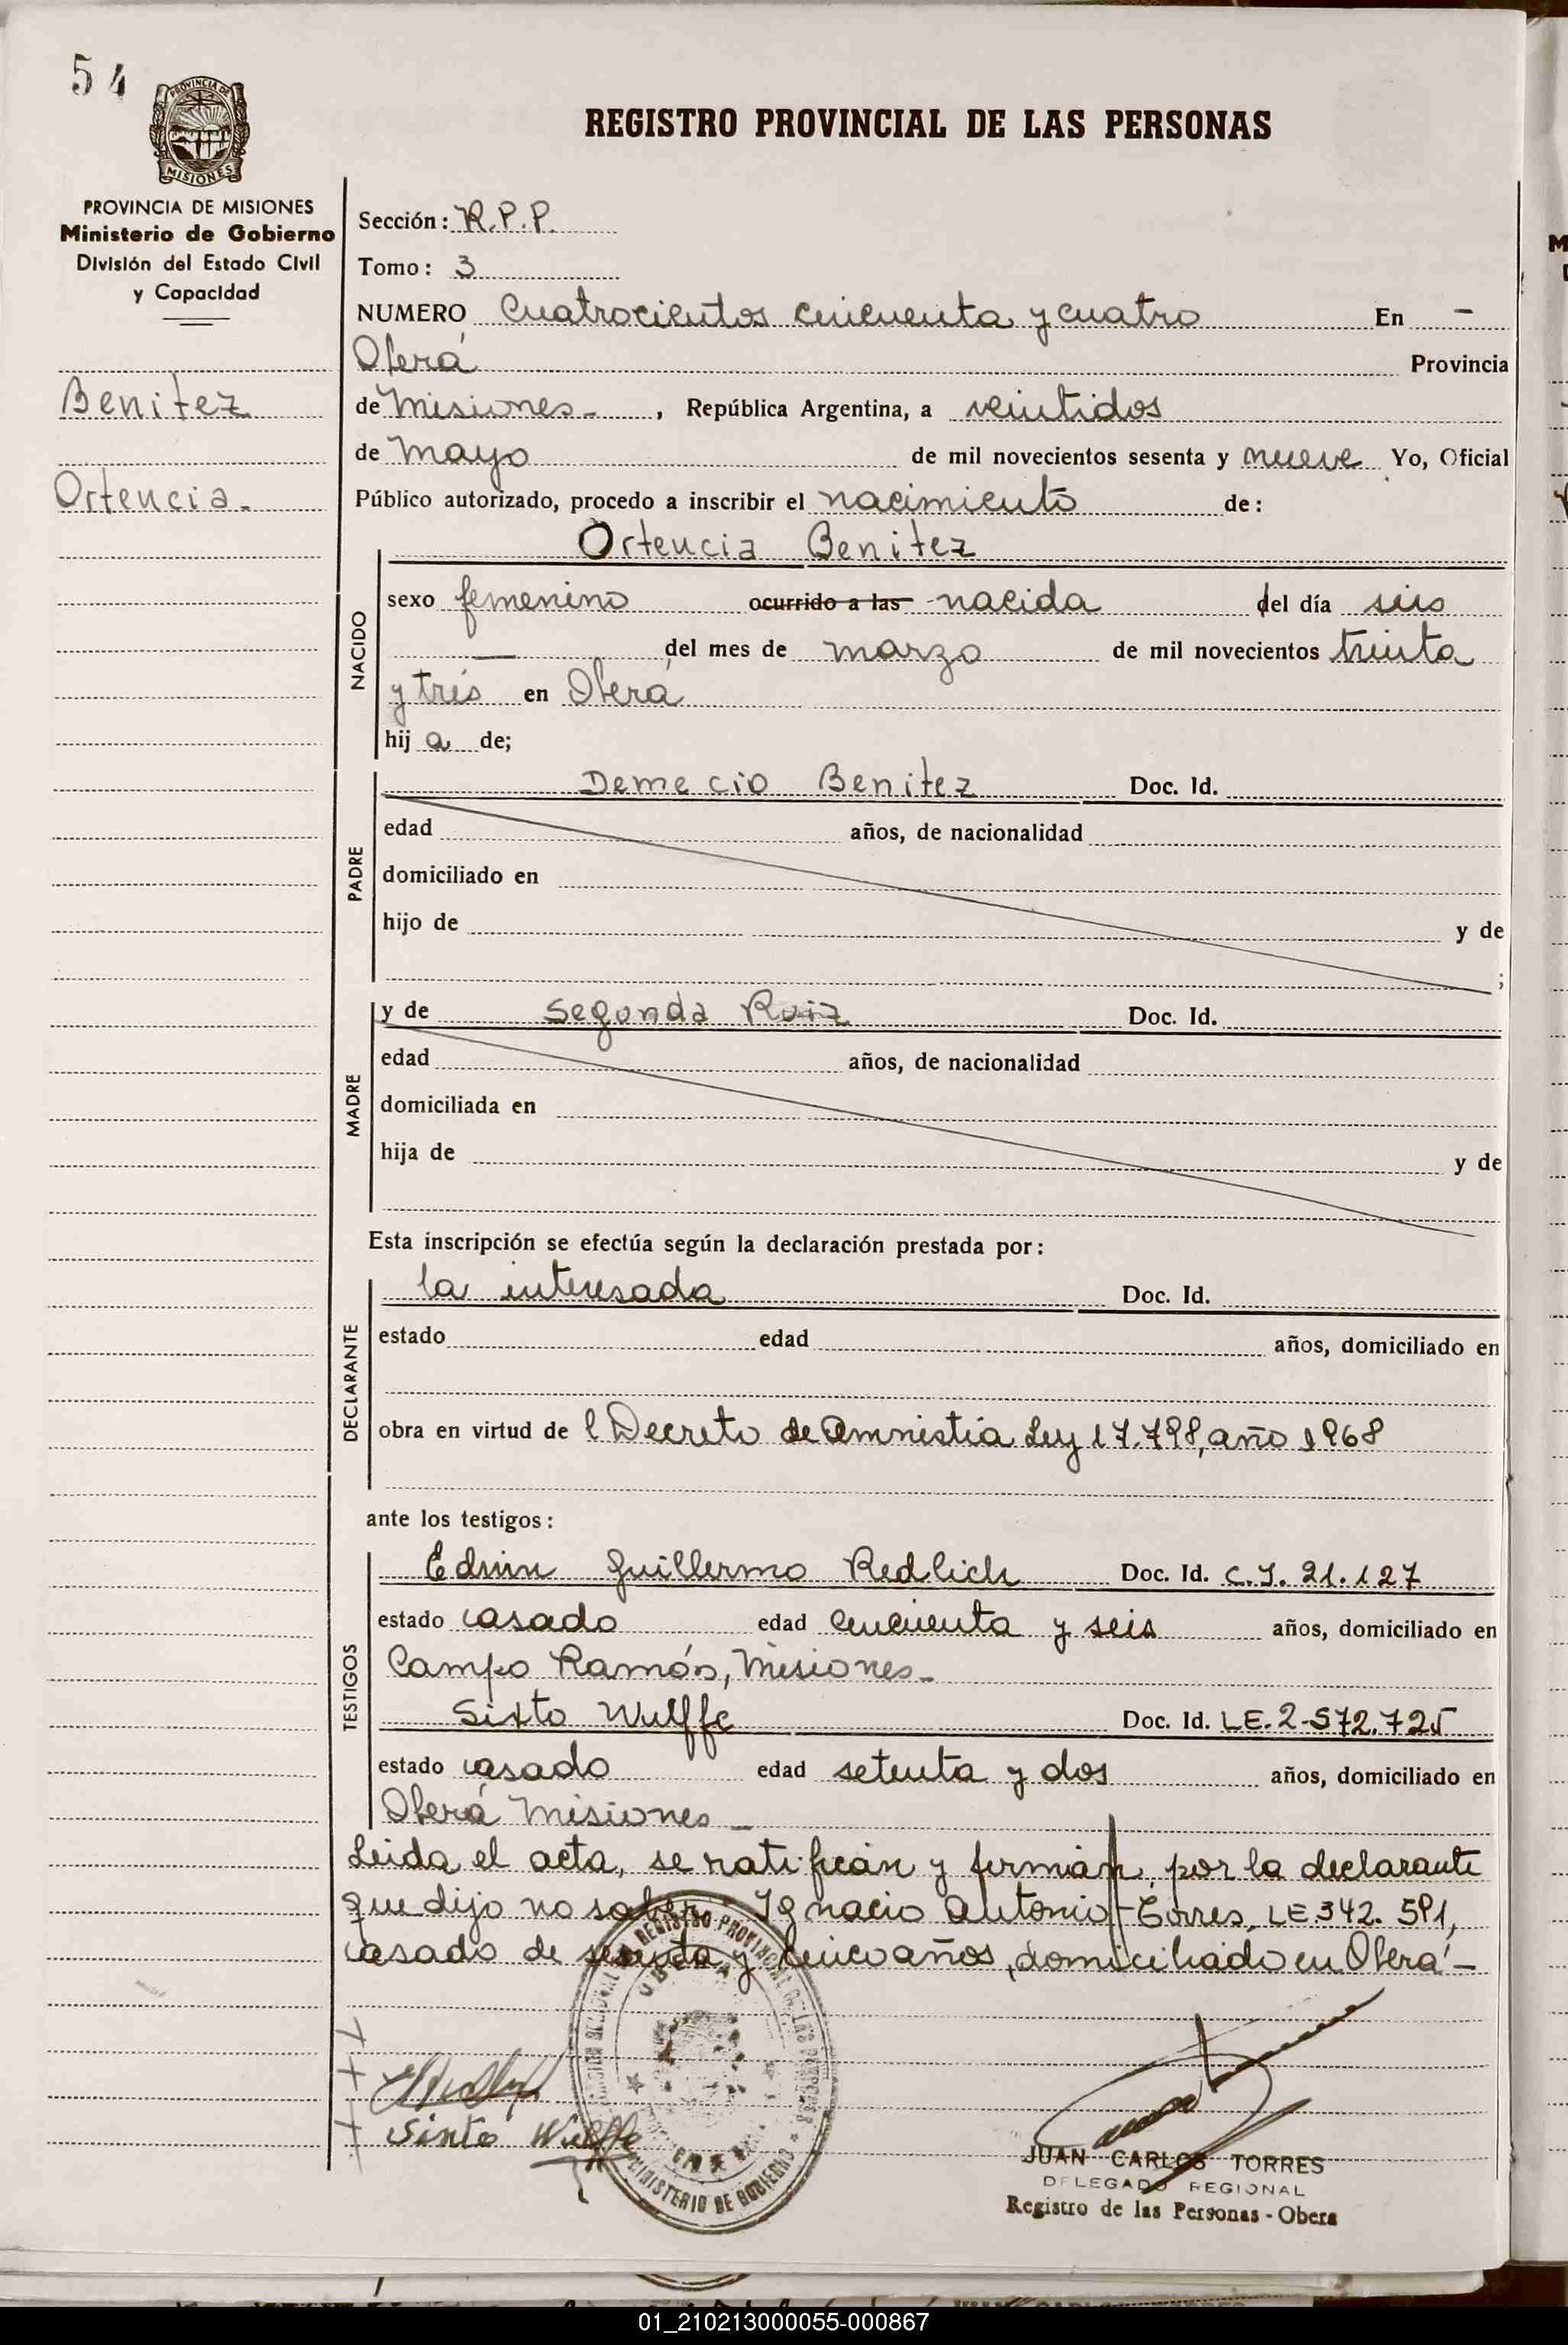 54
PROVINCIA DE
MISIONES
REGISTRO PROVINCIAL DE LAS PERSONAS
PROVINCIA DE MISIONES
Ministerio de Gobierno
División del Estado Civil
y Capacidad
Benitez
Ortencia.
Sección: R.P.P.
Tomo: 3
NUMERO Cuatrocientos cincuenta y cuatro En -
Oberá Provincia
de Misiones-, República Argentina, a veintidos
de Mayo de mil novecientos sesenta y nueve Yo, Oficial
Público autorizado, procedo a inscribir el nacimiento de:
Ortencia Benitez
NACIDO
sexo femenino ocurrido a las nacida del día seis
— del mes de marzo de mil novecientos treinta
y tres en Oberá
hij a de;
PADRE
Demecio Benitez Doc. Id.
edad años, de nacionalidad
domiciliado en
hijo de y de
;
MADRE
y de Segunda Ruiz Doc. Id.
edad años, de nacionalidad
domiciliada en
hija de y de
Esta inscripción se efectúa según la declaración prestada por:
DECLARANTE
la interesada Doc. Id.
estado edad años, domiciliado en
obra en virtud de l Decreto de Amnistia Ley 17.798, año 1968
ante los testigos:
TESTIGOS
Edwin Guillermo Redlich Doc. Id. C.I. 21.127
estado casado edad cincuenta y seis años, domiciliado en
Campo Ramón, Misiones-
Sixto Wulffe Doc. Id. LE. 2-572.725
estado casado edad setenta y dos años, domiciliado en
Oberá Misiones -
Leida el acta, se ratifican y firman, por la declarante
que dijo no saber Ignacio Antonio Torres, LE 342. 591,
casado de y cinco años, domiciliado en Oberá -
REGISTRO PROVINCIAL DE LAS PERSONAS
MINISTERIO DE GOBIERNO
Sixto Wulffe
JUAN CARLOS TORRES
DELEGADO REGIONAL
Registro de las Personas - Obera
01_210213000055-000867